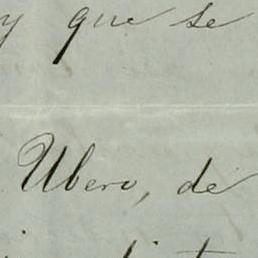 y que se
Ubero, de